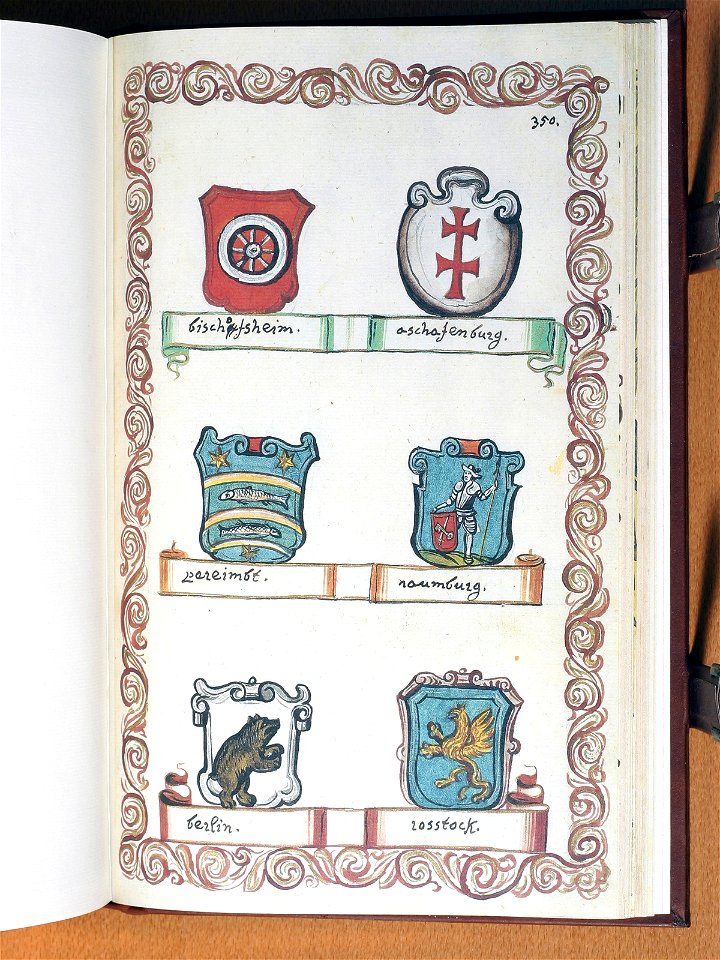 350.
bischofsheim.
aschafenburg.
pareimbt.
naumburg.
berlin.
rosstock.